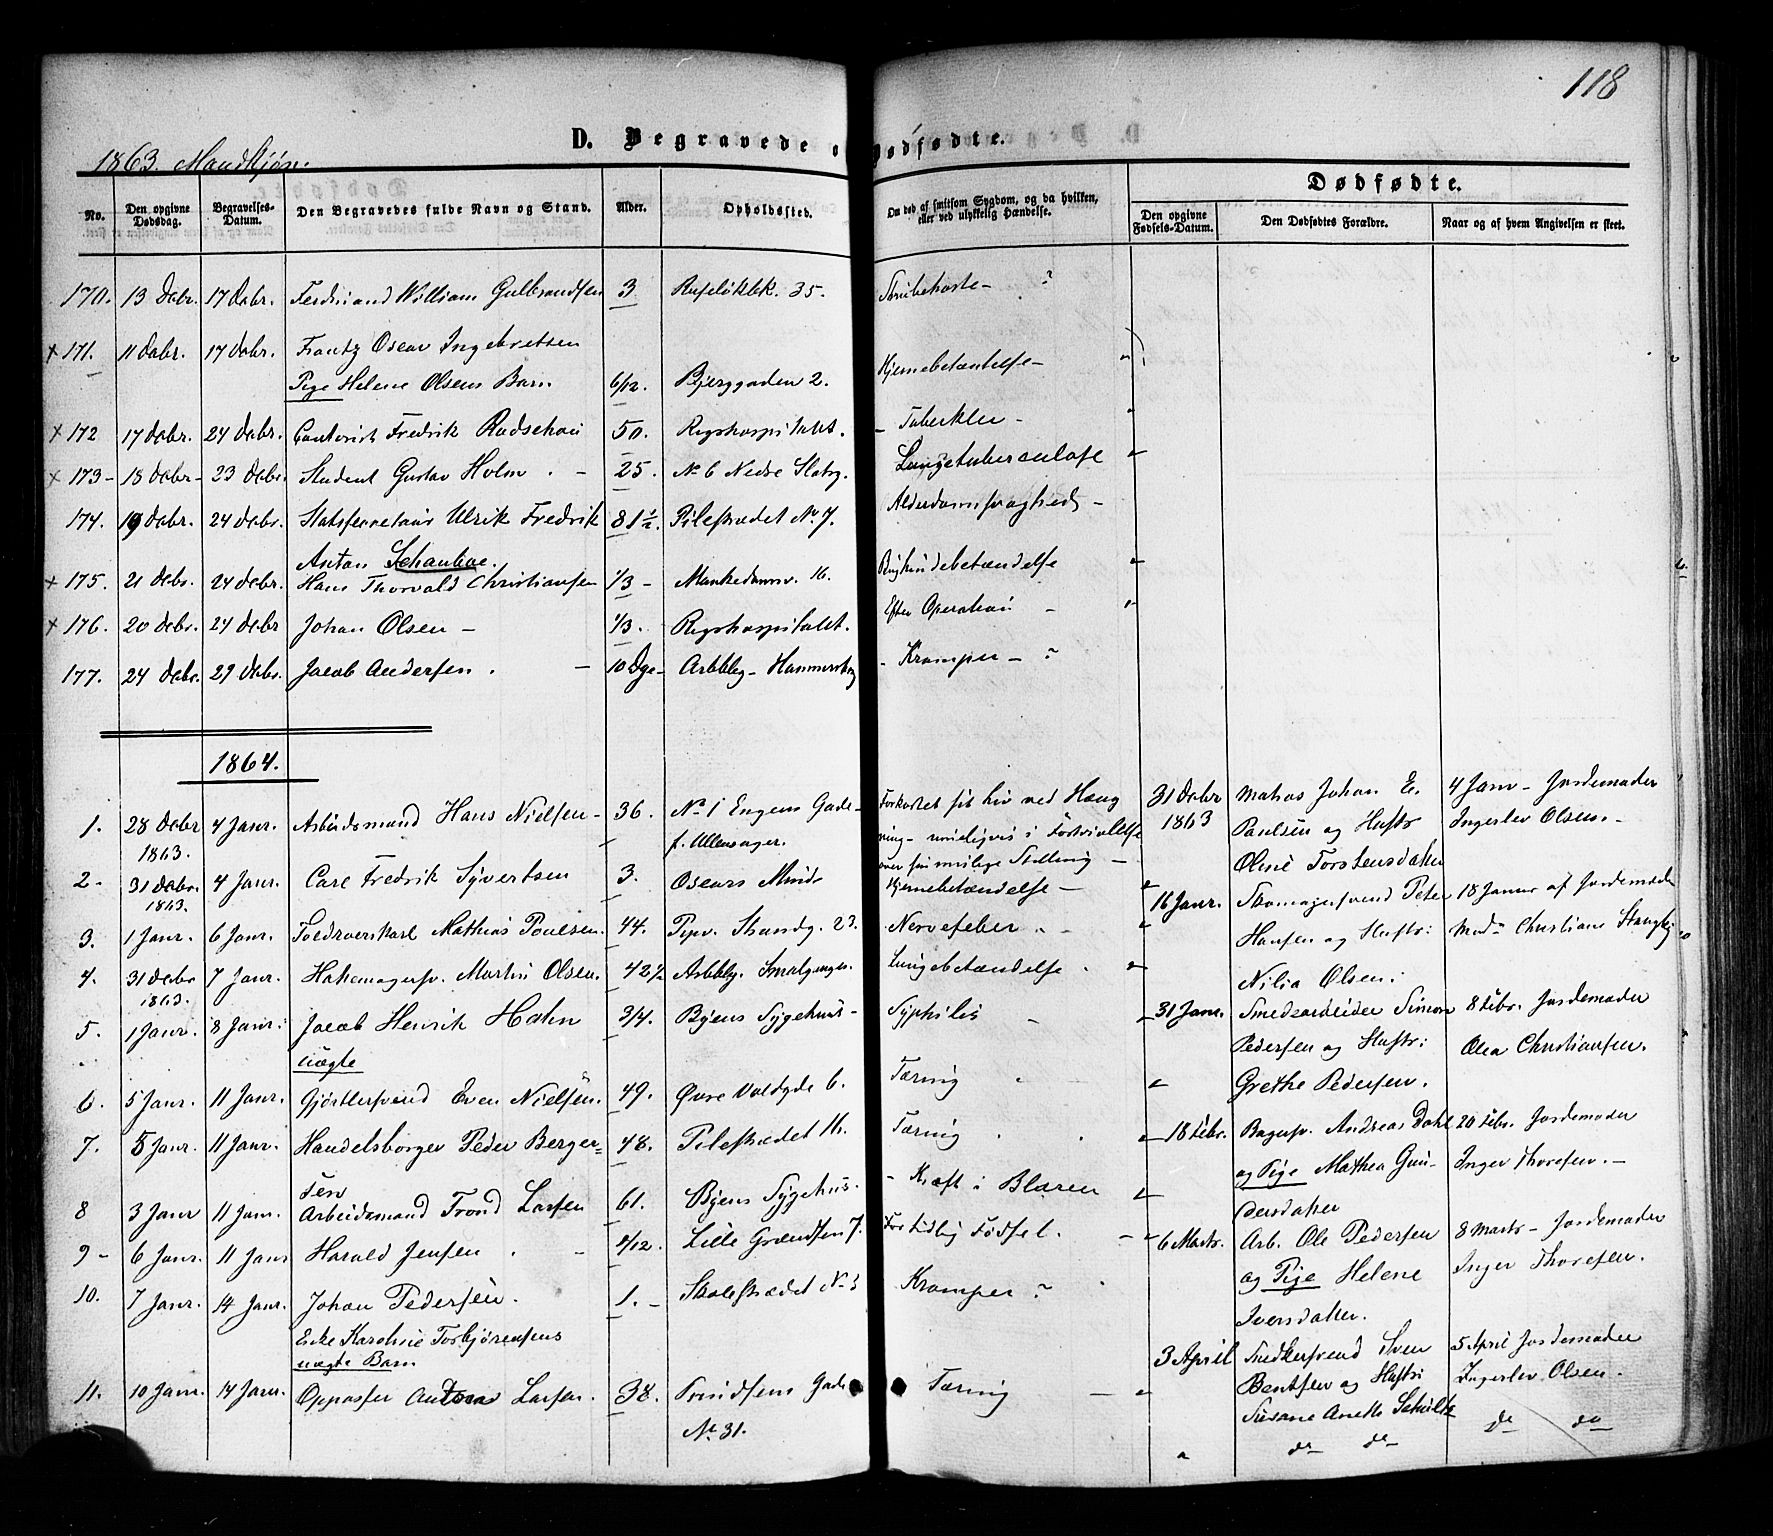 118
D. Begravede o
Dødfødte.
1863. Mandkjøn.
No.
Den opgivne Dødsdag.
Begravelses-Datum.
Den Begravedes fulde Navn og Stand.
Alder.
Opholdssted.
Om død af smitsom Sygdom, og da hvilken, eller ved ulykkelig Hændelse.
Dødfødte.
Den opgivne Fødsels-Datum.
Den Dødfødtes Forældre.
Naar og af hvem Angivelsen er skeet.
170. 13 Debr. 17 Debr. Ferdinand William Gulbrandsen 3 Ruseløkbk. 35. Strubehoste - ?
+ 171. 11 Debr. 17 Debr. Frantz Oscar Ingebretsen
Pige Helene Olsens Barn 6/12. Bjerggaden 2. Hjernebetændelse -
+ 172 17 Debr. 24 Debr. Fredrik 50. Rigshospitalet. - Tuberkler -
+ 173 - 18 Debr - 23 Debr. Student Gustav Holm . - 25. No 6 Nedre Slotsg. Lungetuberculose
174. 19 Debr. 24 Debr. Statssecretair Ulrik Fredrik 81 1/2. Pilestrædet No 7. Alderdomssvaghed -
Anton Schouboe.
+ 175. 21 Debr. 24 Debr. Hans Thorvald Christiansen 1/3 - Munkedamsv. 16. Brysthindebetændelse
+ 176. 20 Debr. 24 Debr Johan Olsen - 1/3. Rigshospitalet. Efter Operation -
177. 24 Debr. 29 Debr. Jacob Andersen . - 10 Dge - Arbbby - Hammersbg - Kramper - ?
1864.
1. 28 Debr 1863. 4 Janr. Arbeidsmand Hans Nielsen - 36. No 1 Engens Gade -
f. Ullensager.
Forkortet sit Liv ved Hæng
ning - rimeligvis i Fortvivlelse
over sin uslige Stilling -
31 Debr 1863
Matros Johan E.
Paulsen og Hustr
Oline Torstensdatter
4 Janr - Jordemoder
Ingerlev Olsen. -
2 - 31 Debr. 1863. 4 Janr. Carl Fredrik Syvertsen 3. Oscars Minde Hjernebetændelse -
16 Janr. Skomagersvend Peter
Hansen og Hustr:
Nilia Olsen.
18 Januar af Jordemoder
Mad. Christiane
3. 1 Janr. 6 Janr. Toldroerskarl Mathias Poulsen. 44. Pipv. Strandg. 23. Nervefeber
4. 31 Debr 1863. 7 Janr. Martin Olsen. 42 1/2 Arbbbg. Lungebetændelse
5. 1 Janr. 8 Janr. Jacob Henrik Hahn 3/4. Byens Sygehuus - Syphilis -
uægte
31 Janr. Smedarbeider Simon
Pedersen og Hustr:
Grethe Pedersen.
8 Febr. Jordemoder
Olea Christiansen.
6. 5 Janr. 11 Janr. Gjørtlersvend Even Nielsen. 49. Øvre Voldgde 6. Tæring
7. 5 Janr. 11 Janr. Handelsborger Peder Berger= 48. Pilestrædet 16. Tæring
sen
18 Febr. Bagersv. Andreas Dahl
og Pige Mathea Gun-
dersdatter
20 Febr. Jordemoder
Inger Thoresen. -
8 3 Janr 11 Janr. Arbeidsmand Trond Larsen 61. Byens Sygehus. - Kræft i Blæren
9 - 6 Janr. 11 Janr Harald Jensen . - /12. Lille Grændsen 7. For tidlig Fødsel.
6 Marts. Arb. Ole Pedersen
og Pige Helene
Iversdatter.
8 Marts - Jordemoder
Inger Thoresen.
10. 7 Janr. 14 Janr. Johan Pedersen. 1. - Skolestrædet No 3 Kramper ?
Enke Karoline Torbjørensens
uægte Barn
3 April Snedkersvend Iver
Bentsen og Hustr
Susane Anette Schultz
5 April Jordemoder
Ingerlev Olsen.
11. 10 Janr. 14 Janr. Oppasser Larsen. 38. Gade
No 31. Tæring -
do do
do do